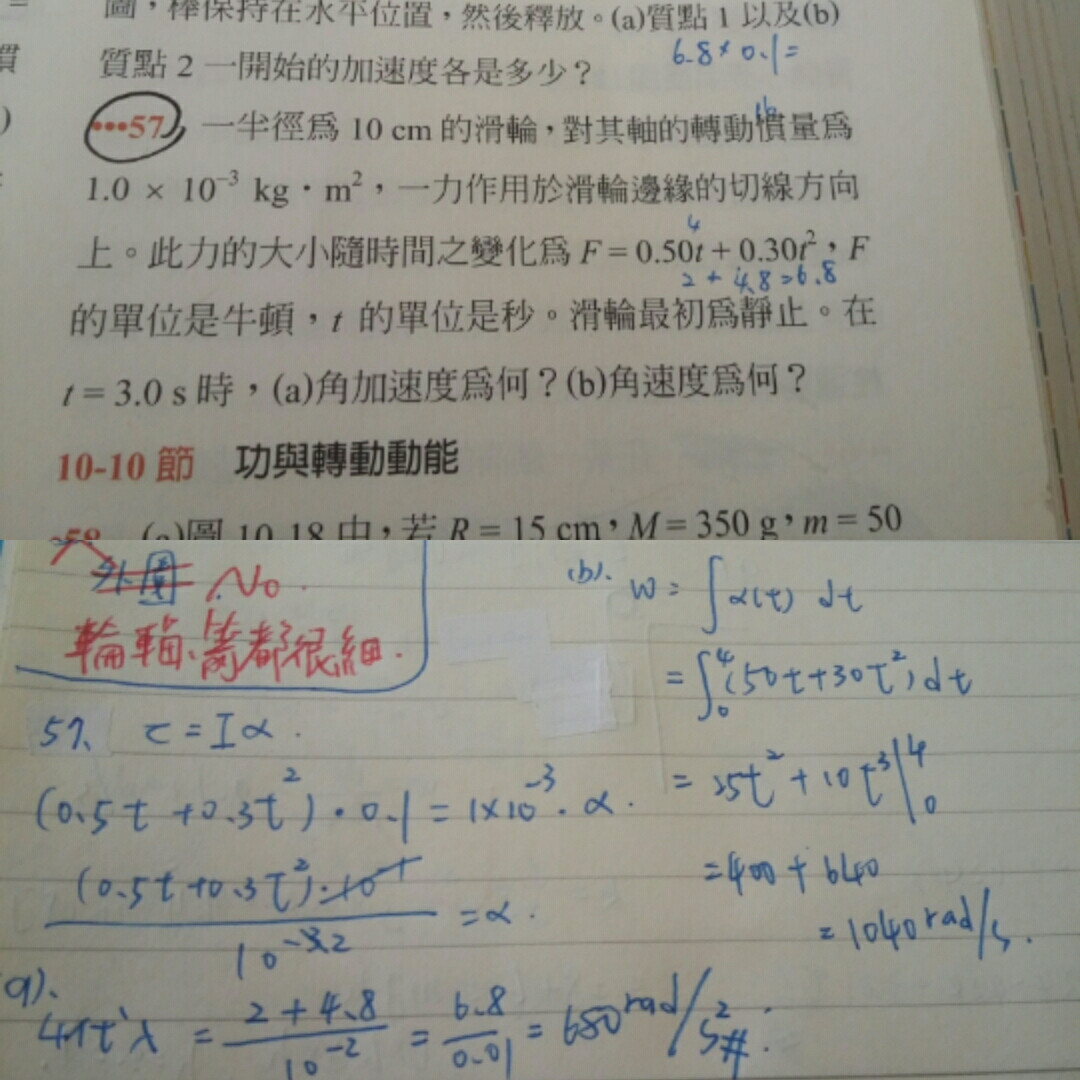 圖，棒保持在水平位置，然後釋放。(a)質點 1 以及(b)
質點 2 一開始的加速度各是多少？
6.8 × 0.1 =
•••57 一半徑為 10 cm 的滑輪，對其軸的轉動慣量為
1.0 × 10⁻³ kg · m²，一力作用於滑輪邊緣的切線方向
4
上。此力的大小隨時間之變化為 F = 0.50t + 0.30t²，F
2 + 4.8 = 6.8
的單位是牛頓，t 的單位是秒。滑輪最初為靜止。在
t = 3.0 s 時，(a)角加速度為何？(b)角速度為何？
10-10 節 功與轉動動能
•58 (a)圖 10-18 中，若 R = 15 cm，M = 350 g，m = 50
外圍 No.
輪軸、都很細.
57、 τ = Iα.
(0.5t + 0.3t²) · 0.1 = 1×10⁻³ · α.
(0.5t+0.3t²)·10⁻¹ / 10⁻³2 = α.
(a).
4代入 = 2 + 4.8 / 10⁻² = 6.8 / 0.01 = 680 rad/s² #.
(b). W = ∫ α(t) dt
= ∫₀⁴ (50t+30t²) dt
= 25t² + 10t³ |₀⁴
= 400 + 640
= 1040 rad/s.